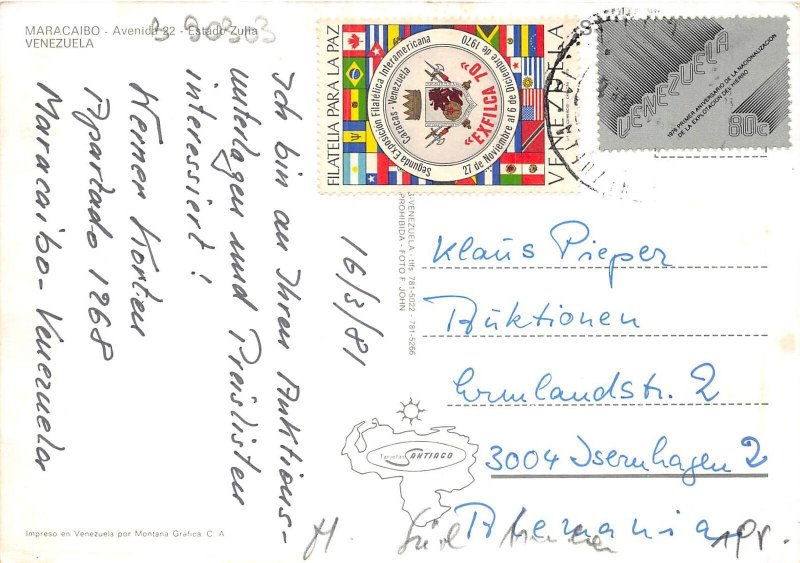 MARACAIBO - Avenida 22 - Estado Zulia
VENEZUELA
Ich bin an Ihren Auktions-
unterlagen und Preislisten
interessiert!
Werner Korten
Apartado 1268
Maracaibo - Venezuela
16/3/81
FILATELIA PARA LA PAZ
Segunda Exposición Filatélica Interamericana
Caracas - Venezuela
"EXFILCA 70"
27 de Noviembre al 6 de Diciembre de 1970
VENEZUELA
VENEZUELA
1976 PRIMER ANIVERSARIO DE LA NACIONALIZACION
DE LA EXPLOTACION DEL HIERRO
80c
VENEZUELA - tlfs. 781-5022 - 781-5266
PROHIBIDA - FOTO F. JOHN
Klaus Pieper
Auktionen
Ermlandstr. 2
3004 Isernhagen 2
Alemania
Tarjetas SANTIAGO
Impreso en Venezuela por Montana Gráfica C. A.